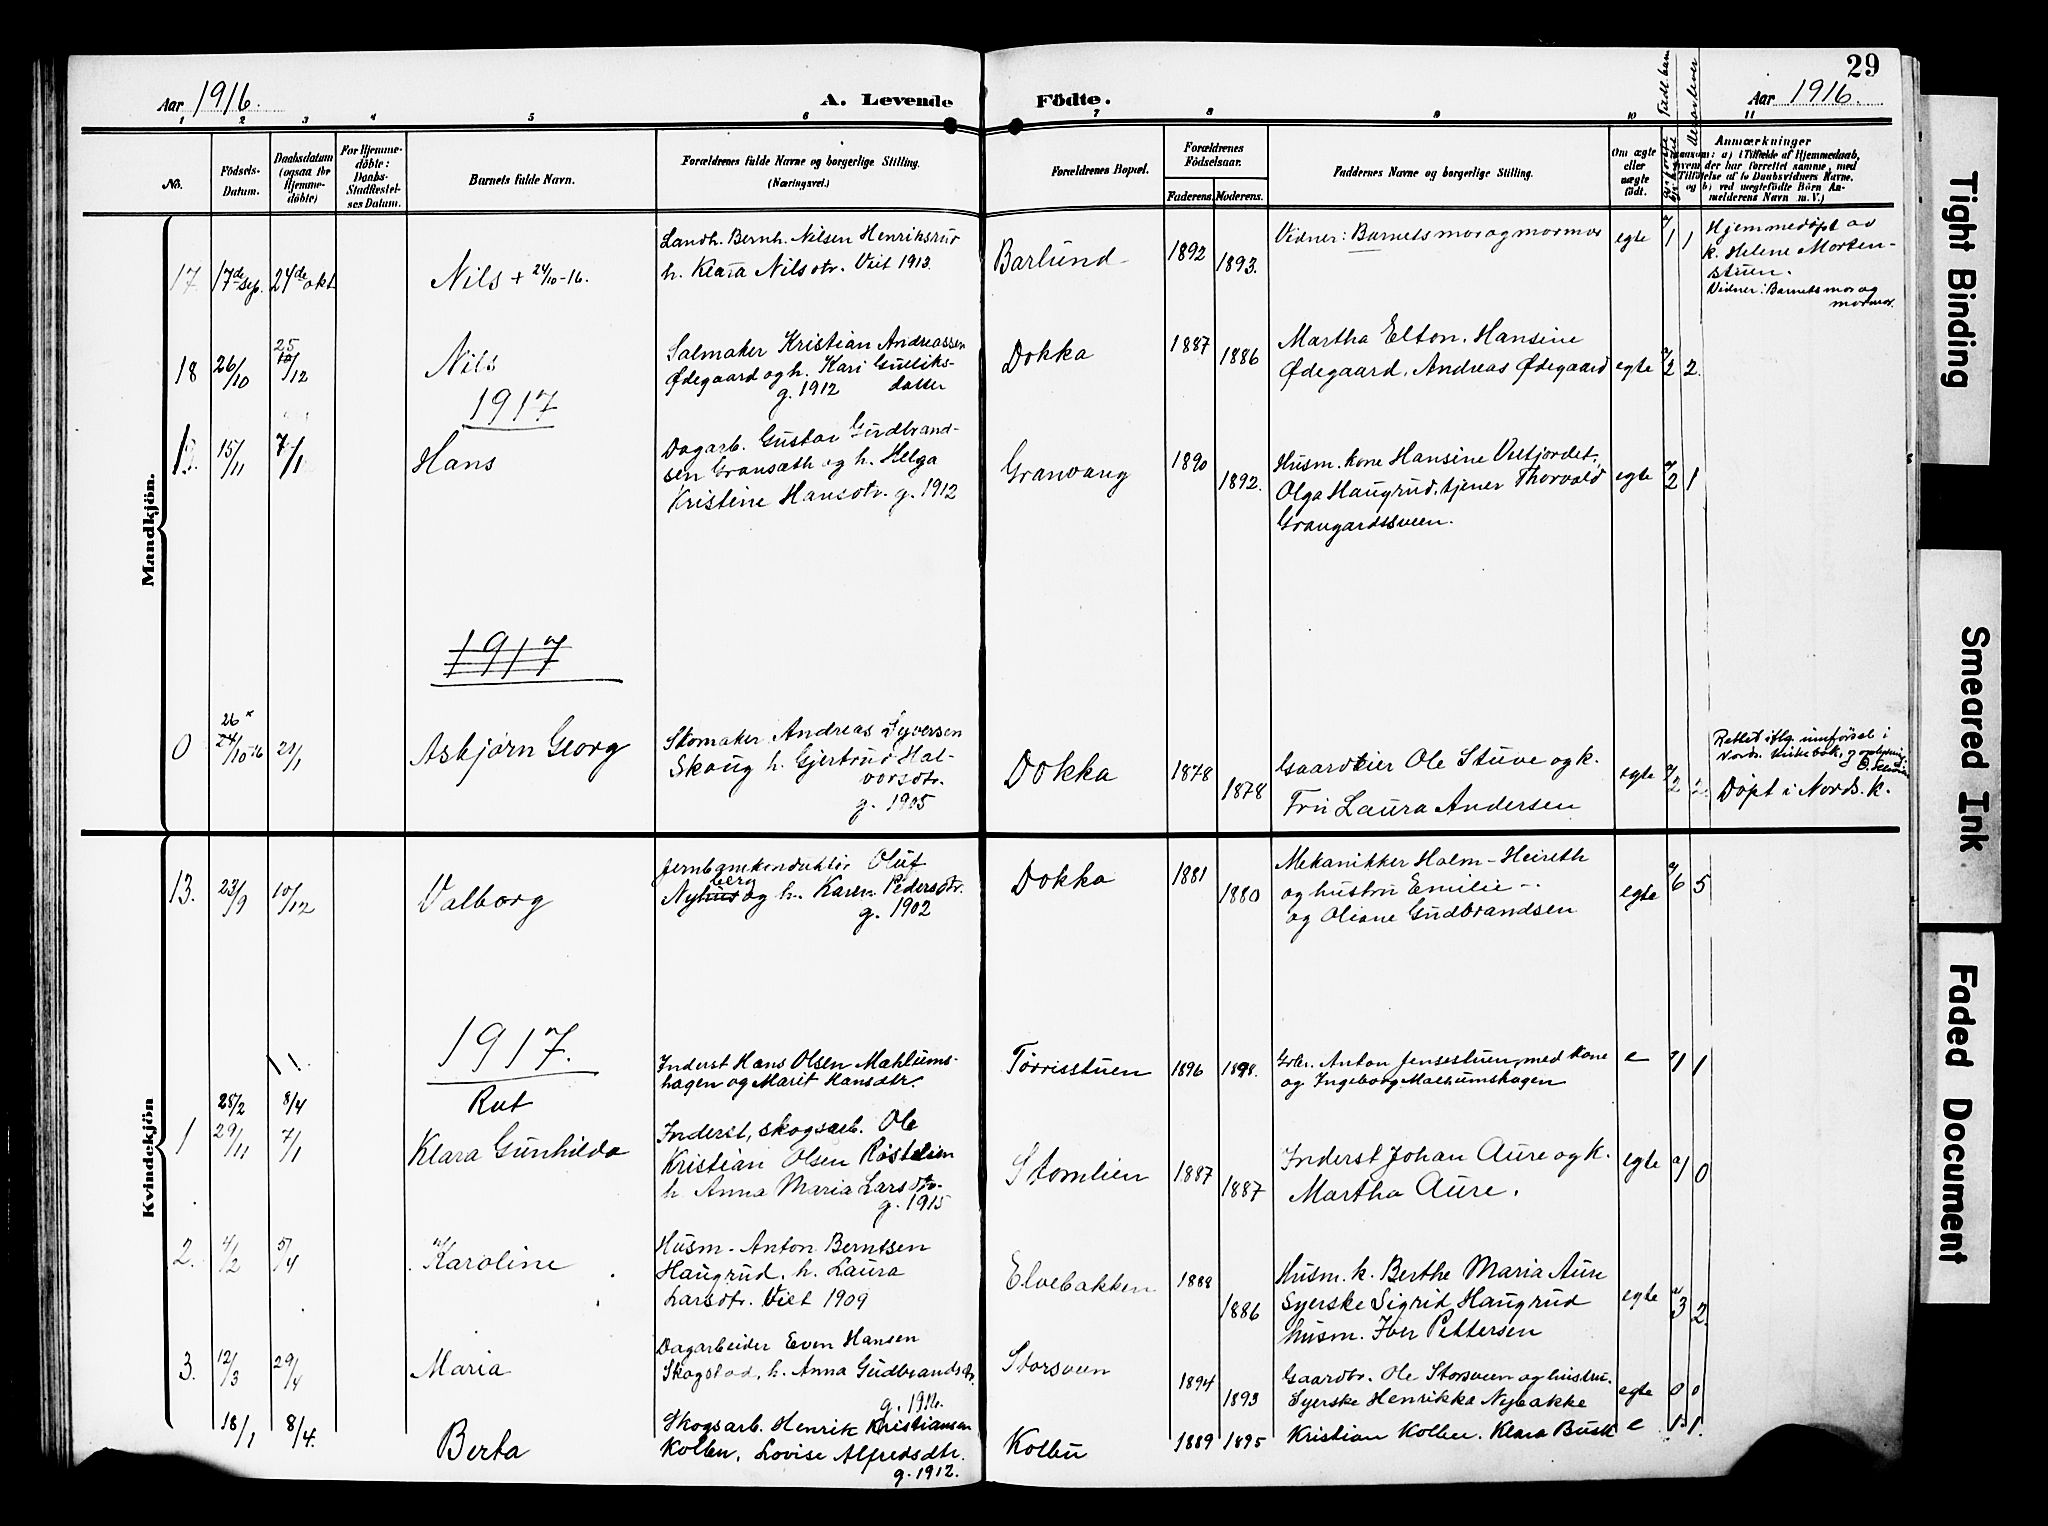 29
Aar 1916.
A. Levende Födte.
Aar 1916.
1 2 3 4 5 6 7 8 9 10 11
No.
Födsels-
Datum.
Daabsdatum
(ogsaa for
Hjemme-
döbte)
For Hjemme-
döbte:
Daabs-
Stadfæstel-
ses Datum.
Barnets fulde Navn.
Forældrenes fulde Navne og borgerlige Stilling.
(Næringsvei.)
Forældrenes Bopæl.
Forældrenes
Födselsaar.
Faderens. Moderens.
Faddernes Navne og borgerlige Stilling.
Om ægte
eller
uægte
födt.
Anmærkninger
Mandkjön.
17 17de sep. 24de okt
Nils + 24/10-16.
Landh. Bernh. Nilsen Henriksrud
h. Klara Nilsdtr. Viet 1913.
Barlund
1892 1893.
Vidner: Barnets mor og mormor
egte 1 1
Hjemmedøpt av
k. Helene Morten-
stuen.
Vidner: Barnets mor og
mormor.
18 26/10 25/12
Nils
Salmaker Kristian Andreassen
Ødegaard og h. Kari Gulliks-
g. 1912 datter
Dokka
1887 1886
Martha Elton, Hansine
Ødegaard, Andreas Ødegaard
egte 2 2.
1917
15/11 7/1
Hans
Dagarb. Gustav Gudbrand-
sen Gransæth og h. Helga
Kristine Hansdtr. g. 1912
Granvang
1890 1892.
Husm. kone Hansine Vestjordet,
Olga Haugrud, tjener Thorvald
Grangardssveen.
egte 2 1
1917
0 26 24/10-16 21/1
Asbjørn Georg
Skomaker Andreas Syversen
Skaug h. Gjertrud Hal-
vorsdtr.
g. 1905
Dokka
1878 1878
Gaardeier Ole Stuve og k.
Fru Laura Andersen
egte 2 2.
Rettet iflg. innførsel i
Døpt i Nords. k.
Kvindekjön
13. 23/9 10/12
Valborg
Jernbanekonduktør Oluf
berg
Nyhus og h. Karen Pedersdtr.
g. 1902
Dokka
1881 1880
Mekanikker Holm-Heireth
og hustru Emilie
og Oliane Gudbrandsen
egte 6 5
1917.
25/2 8/4
Rut
Inderst Hans Olsen Mæhlums-
hagen og Marit Hansdtr.
Tørrisstuen
1896 1898.
Grbr. Anton Jensestuen med kone
og Ingeborg Mæhlumshagen
e 1 1
1 29/11 7/1
Klara Gunhilda
Inderst, skogsarb. Ole
Kristian Olsen Røstelien
h. Anna Maria Larsdtr.
g. 1915
Stomlien
1887 1887
Inderst Johan Aure og k.
Martha Aure.
egte 1 0
2. 4/2 5/4
Karoline
Husm. Anton Berntsen
Haugrud, h. Laura
Larsdtr. Viet 1909
Elvebakken
1888 1886
Husm. k. Berthe Maria Aure
Syerske Sigrid Haugrud
husm. Iver Pettersen
egte 3 2
3. 12/3 29/4
Maria
Dagarbeider Even Hansen
Skogstad, h. Anna Gudbrandsdtr.
g. 1916.
Storsveen
1894 1893
Gaardbr. Ole Storsveen og hustru.
Syerske Henrikka Nybakke
egte 0 0
18/1 8/4.
Berta
Skogsarb. Henrik Kristiansen
Kolbu, Lovise Alfredsdtr.
g. 1912.
Kolbu
1889 1895
Kristian Kolbu, Klara Busk
e 1. 1.
Tight Binding
Smeared Ink
Faded Document